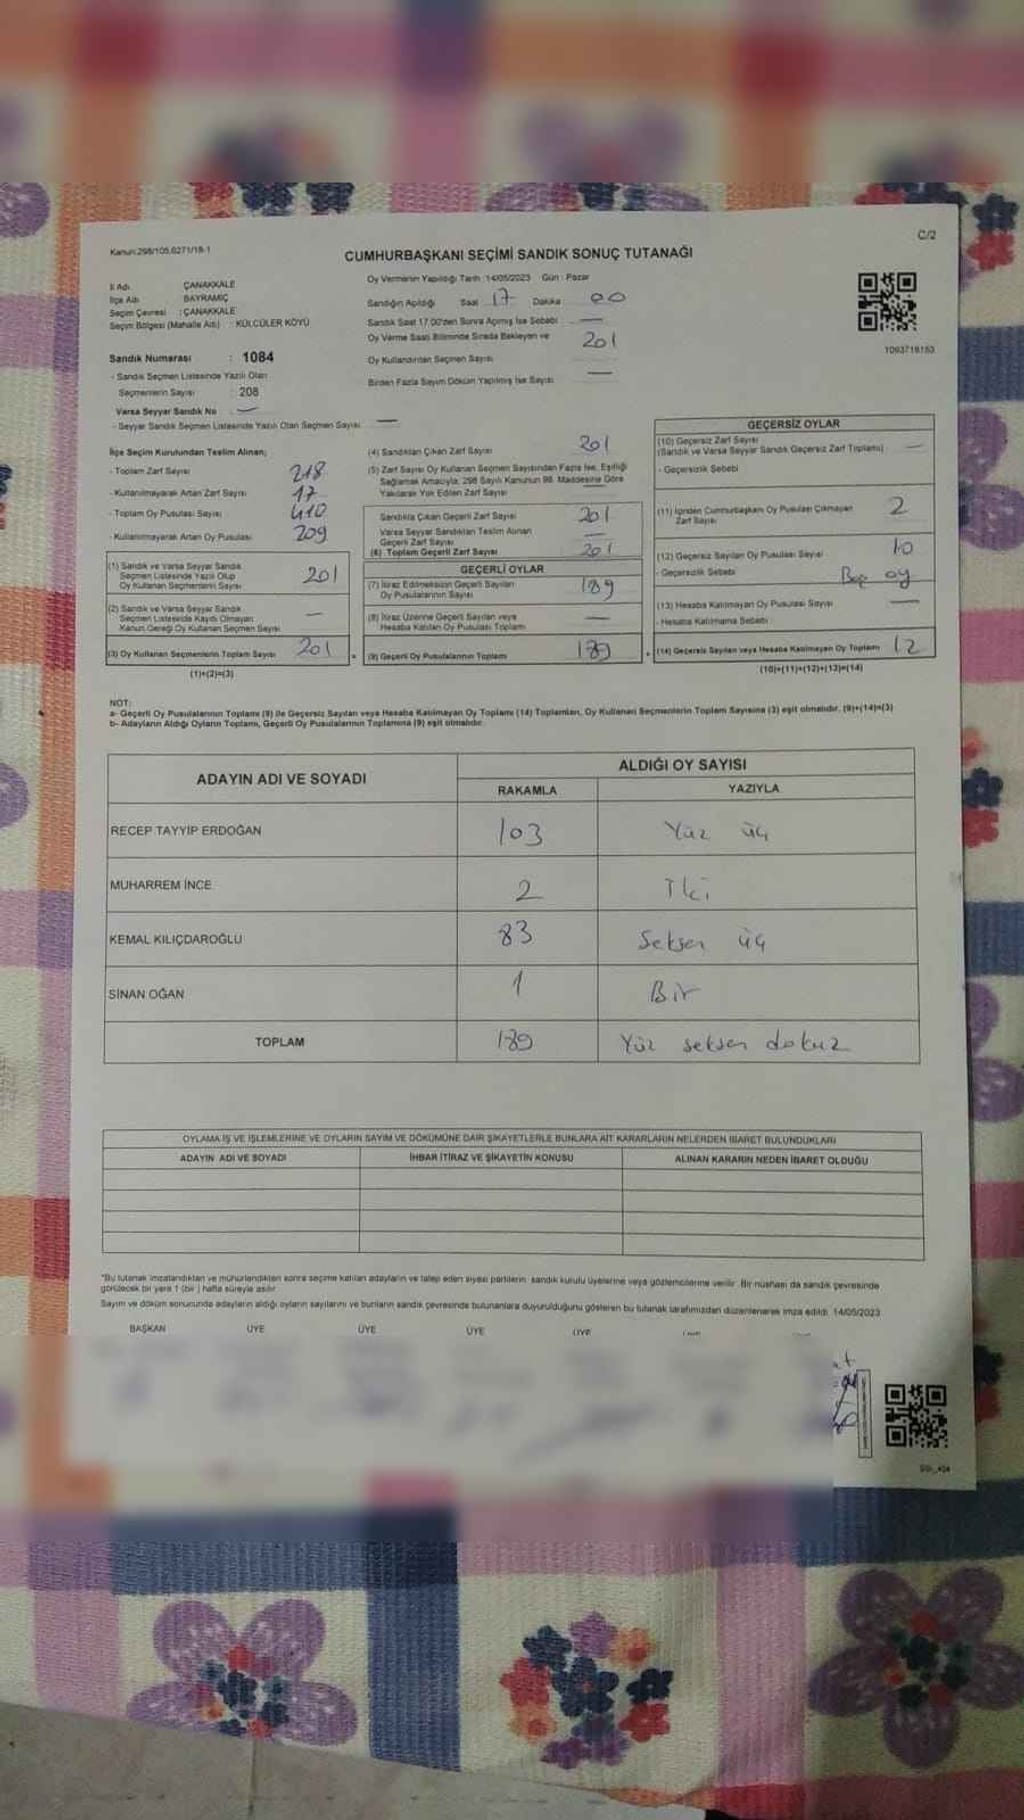 C/2
Kanun:298/105,6271/18-1
CUMHURBAŞKANI SEÇİMİ SANDIK SONUÇ TUTANAĞI
İl Adı ÇANAKKALE
İlçe Adı BAYRAMİÇ
Seçim Çevresi : ÇANAKKALE
Seçim Bölgesi (Mahalle Adı) : KÜLCÜLER KÖYÜ
Oy Vermenin Yapıldığı Tarih :14/05/2023 Gün : Pazar
Sandığın Açıldığı Saat 17 Dakika 00
Sandık Saat 17.00'den Sonra Açılmış İse Sebebi : —
Oy Verme Saati Bitiminde Sırada Bekleyen ve
Oy Kullandırılan Seçmen Sayısı 201
Birden Fazla Sayım Döküm Yapılmış İse Sayısı —
1093718153
Sandık Numarası : 1084
- Sandık Seçmen Listesinde Yazılı Olan
Seçmenlerin Sayısı : 208
Varsa Seyyar Sandık No : —
- Seyyar Sandık Seçmen Listesinde Yazılı Olan Seçmen Sayısı —
İlçe Seçim Kurulundan Teslim Alınan;
- Toplam Zarf Sayısı 218
- Kullanılmayarak Artan Zarf Sayısı 17
- Toplam Oy Pusulası Sayısı 410
- Kullanılmayarak Artan Oy Pusulası 209
(1) Sandık ve Varsa Seyyar Sandık
Seçmen Listesinde Yazılı Olup
Oy Kullanan Seçmenlerin Sayısı 201
(2) Sandık ve Varsa Seyyar Sandık
Seçmen Listesinde Kaydı Olmayan
Kanun Gereği Oy Kullanan Seçmen Sayısı —
(3) Oy Kullanan Seçmenlerin Toplam Sayısı 201
(1)+(2)=(3)
(4) Sandıktan Çıkan Zarf Sayısı 201
(5) Zarf Sayısı Oy Kullanan Seçmen Sayısından Fazla İse, Eşitliği
Sağlamak Amacıyla; 298 Sayılı Kanunun 98. Maddesine Göre
Yakılarak Yok Edilen Zarf Sayısı —
Sandıkta Çıkan Geçerli Zarf Sayısı 201
Varsa Seyyar Sandıktan Teslim Alınan
Geçerli Zarf Sayısı —
(6) Toplam Geçerli Zarf Sayısı 201
GEÇERLİ OYLAR
(7) İtiraz Edilmeksizin Geçerli Sayılan
Oy Pusulalarının Sayısı 189
(8) İtiraz Üzerine Geçerli Sayılan veya
Hesaba Katılan Oy Pusulası Toplamı —
(9) Geçerli Oy Pusulalarının Toplamı 189
GEÇERSİZ OYLAR
(10) Geçersiz Zarf Sayısı
(Sandık ve Varsa Seyyar Sandık Geçersiz Zarf Toplamı) —
- Geçersizlik Sebebi
(11) İçinden Cumhurbaşkanı Oy Pusulası Çıkmayan
Zarf Sayısı 2
(12) Geçersiz Sayılan Oy Pusulası Sayısı 10
- Geçersizlik Sebebi Boş oy
(13) Hesaba Katılmayan Oy Pusulası Sayısı —
- Hesaba Katılmama Sebebi
(14) Geçersiz Sayılan veya Hesaba Katılmayan Oy Toplamı 12
(10)+(11)+(12)+(13)=(14)
NOT:
a- Geçerli Oy Pusulalarının Toplamı (9) ile Geçersiz Sayılan veya Hesaba Katılmayan Oy Toplamı (14) Toplamları, Oy Kullanan Seçmenlerin Toplam Sayısına (3) eşit olmalıdır. (9)+(14)=(3)
b- Adayların Aldığı Oyların Toplamı, Geçerli Oy Pusulalarının Toplamına (9) eşit olmalıdır.
ADAYIN ADI VE SOYADI ALDIĞI OY SAYISI
RAKAMLA YAZIYLA
RECEP TAYYİP ERDOĞAN 103 Yüz üç
MUHARREM İNCE 2 İki
KEMAL KILIÇDAROĞLU 83 Seksen üç
SİNAN OĞAN 1 Bir
TOPLAM 189 Yüz seksen dokuz
OYLAMA İŞ VE İŞLEMLERİNE VE OYLARIN SAYIM VE DÖKÜMÜNE DAİR ŞİKAYETLERLE BUNLARA AİT KARARLARIN NELERDEN İBARET BULUNDUKLARI
ADAYIN ADI VE SOYADI İHBAR İTİRAZ VE ŞİKAYETİN KONUSU ALINAN KARARIN NEDEN İBARET OLDUĞU
*Bu tutanak imzalandıktan ve mühürlendikten sonra seçime katılan adayların ve talep eden siyasi partilerin sandık kurulu üyelerine veya gözlemcilerine verilir. Bir nüshası da sandık çevresinde
görülecek bir yere 1 (bir ) hafta süreyle asılır.
Sayım ve döküm sonucunda adayların aldığı oyların sayılarını ve bunların sandık çevresinde bulunanlara duyurulduğunu gösteren bu tutanak tarafımızdan düzenlenerek imza edildi. 14/05/2023
BAŞKAN ÜYE ÜYE ÜYE ÜYE